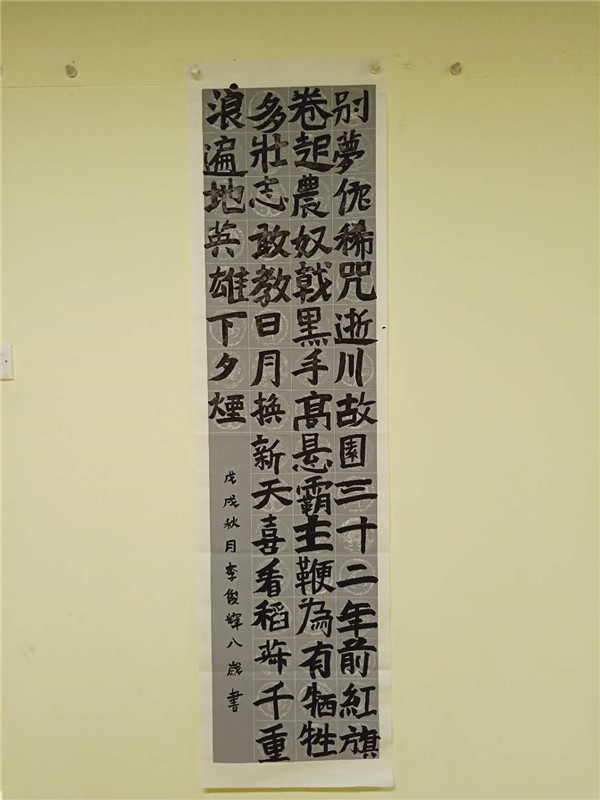 别夢依稀咒逝川故園三十二年前紅旗
卷起農奴戟黑手髙悬霸主鞭為有牺牲
多壯志敢教日月换新天喜看稻菽千重
浪遍地英雄下夕煙
戊戌秋月李俊輝八歲書